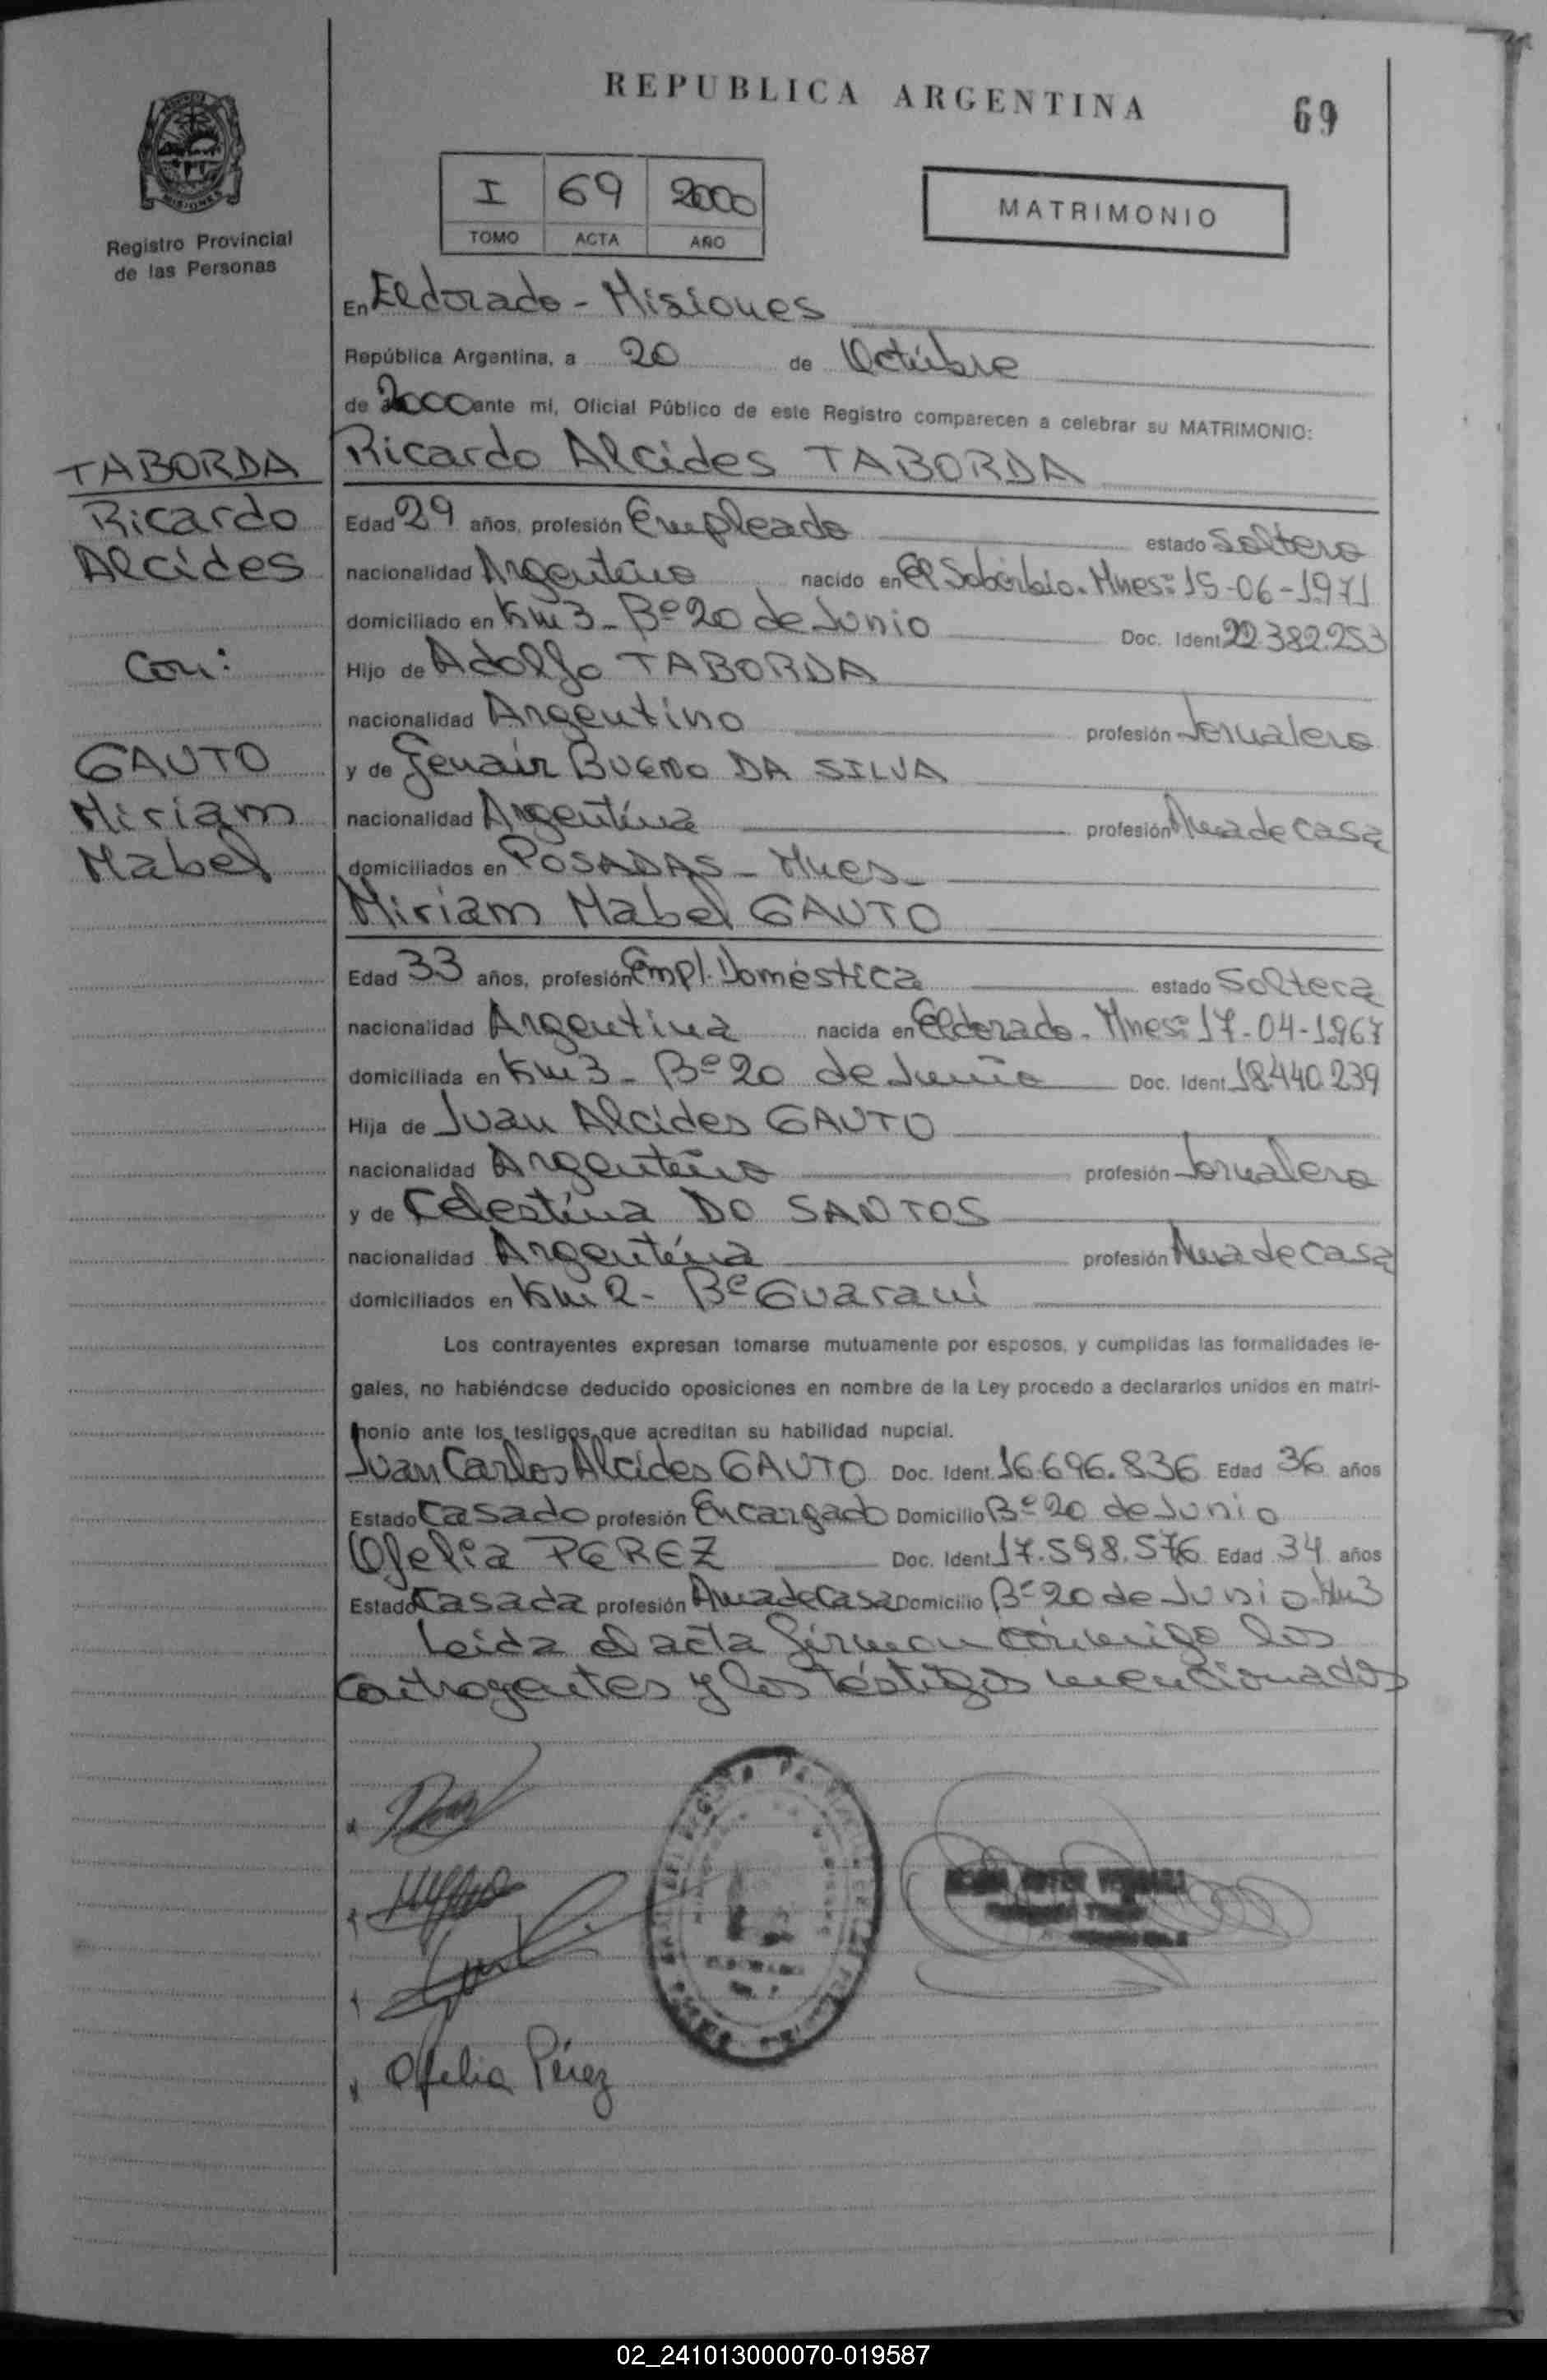 REPUBLICA ARGENTINA
69
MISIONES
Registro Provincial
de las Personas
I 69 2000
TOMO ACTA AÑO
MATRIMONIO
En Eldorado - Misiones
República Argentina, a 20 de Octubre
de 2000 ante mí, Oficial Público de este Registro comparecen a celebrar su MATRIMONIO:
TABORDA
Ricardo
Alcides
Con:
GAUTO
Miriam
Mabel
Ricardo Alcides TABORDA
Edad 29 años, profesión Empleado estado Soltero
nacionalidad Argentino nacido en El Soberbio. Mnes: 15-06-1971
domiciliado en Km 3 - Bº 20 de Junio Doc. Ident 22.382.253
Hijo de Adolfo TABORDA
nacionalidad Argentino profesión Jornalero
y de Genair BUENO DA SILVA
nacionalidad Argentina profesión Ama de casa
domiciliados en POSADAS - Mnes-
Miriam Mabel GAUTO
Edad 33 años, profesión Empl. Doméstica estado Soltera
nacionalidad Argentina nacida en Eldorado - Mnes: 17-04-1967
domiciliada en Km 3 - Bº 20 de Junio Doc. Ident 18.440.239
Hija de Juan Alcides GAUTO
nacionalidad Argentino profesión Jornalero
y de Celestina DO SANTOS
nacionalidad Argentina profesión Ama de casa
domiciliados en Km 2 - Bº Guaraní
Los contrayentes expresan tomarse mutuamente por esposos, y cumplidas las formalidades le-
gales, no habiéndose deducido oposiciones en nombre de la Ley procedo a declararlos unidos en matri-
monio ante los testigos que acreditan su habilidad nupcial.
Juan Carlos Alcides GAUTO Doc. Ident. 16.696.836 Edad 36 años
Estado Casado profesión Encargado Domicilio Bº 20 de Junio
Ofelia PEREZ Doc. Ident 17.598.576 Edad 34 años
Estado Casada profesión Ama de Casa Domicilio Bº 20 de Junio. Km 3
Leida el acta firman conmigo los
contrayentes y los testigos mencionados
Ofelia Pérez
02_241013000070-019587